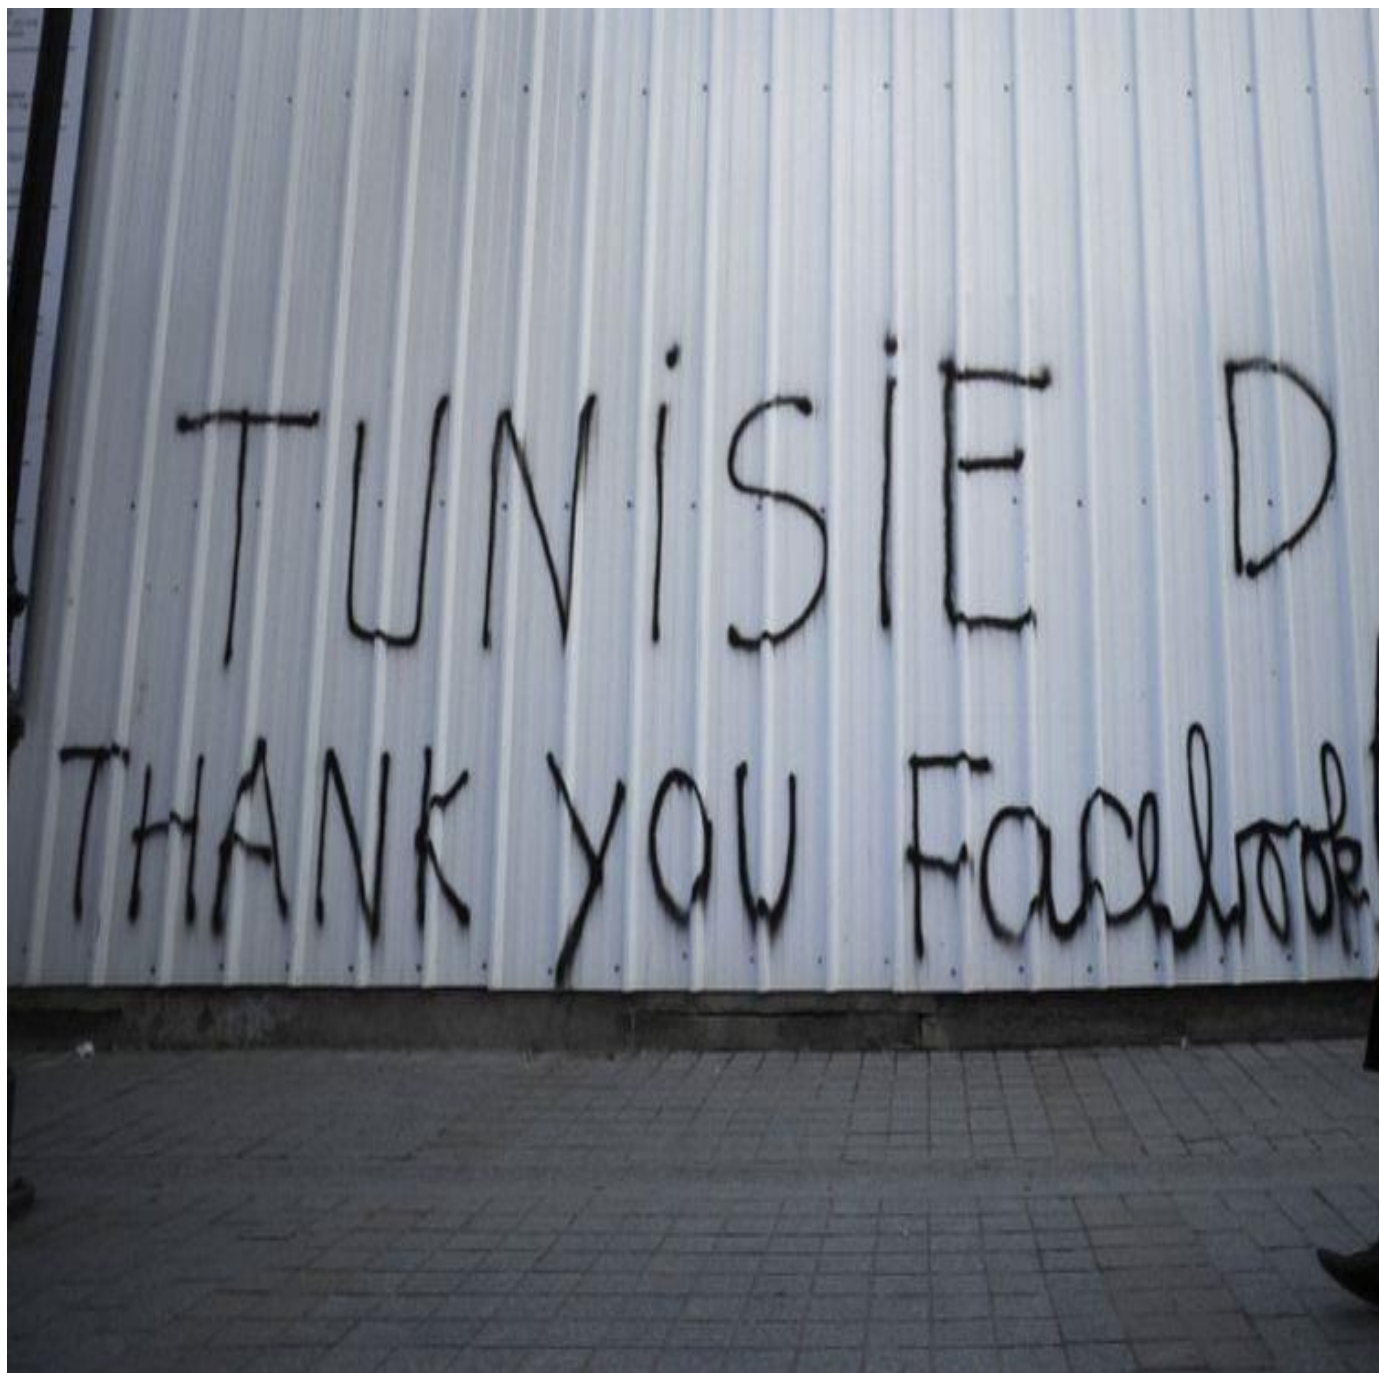 TUNiSiE D
THANK YOU Facebook